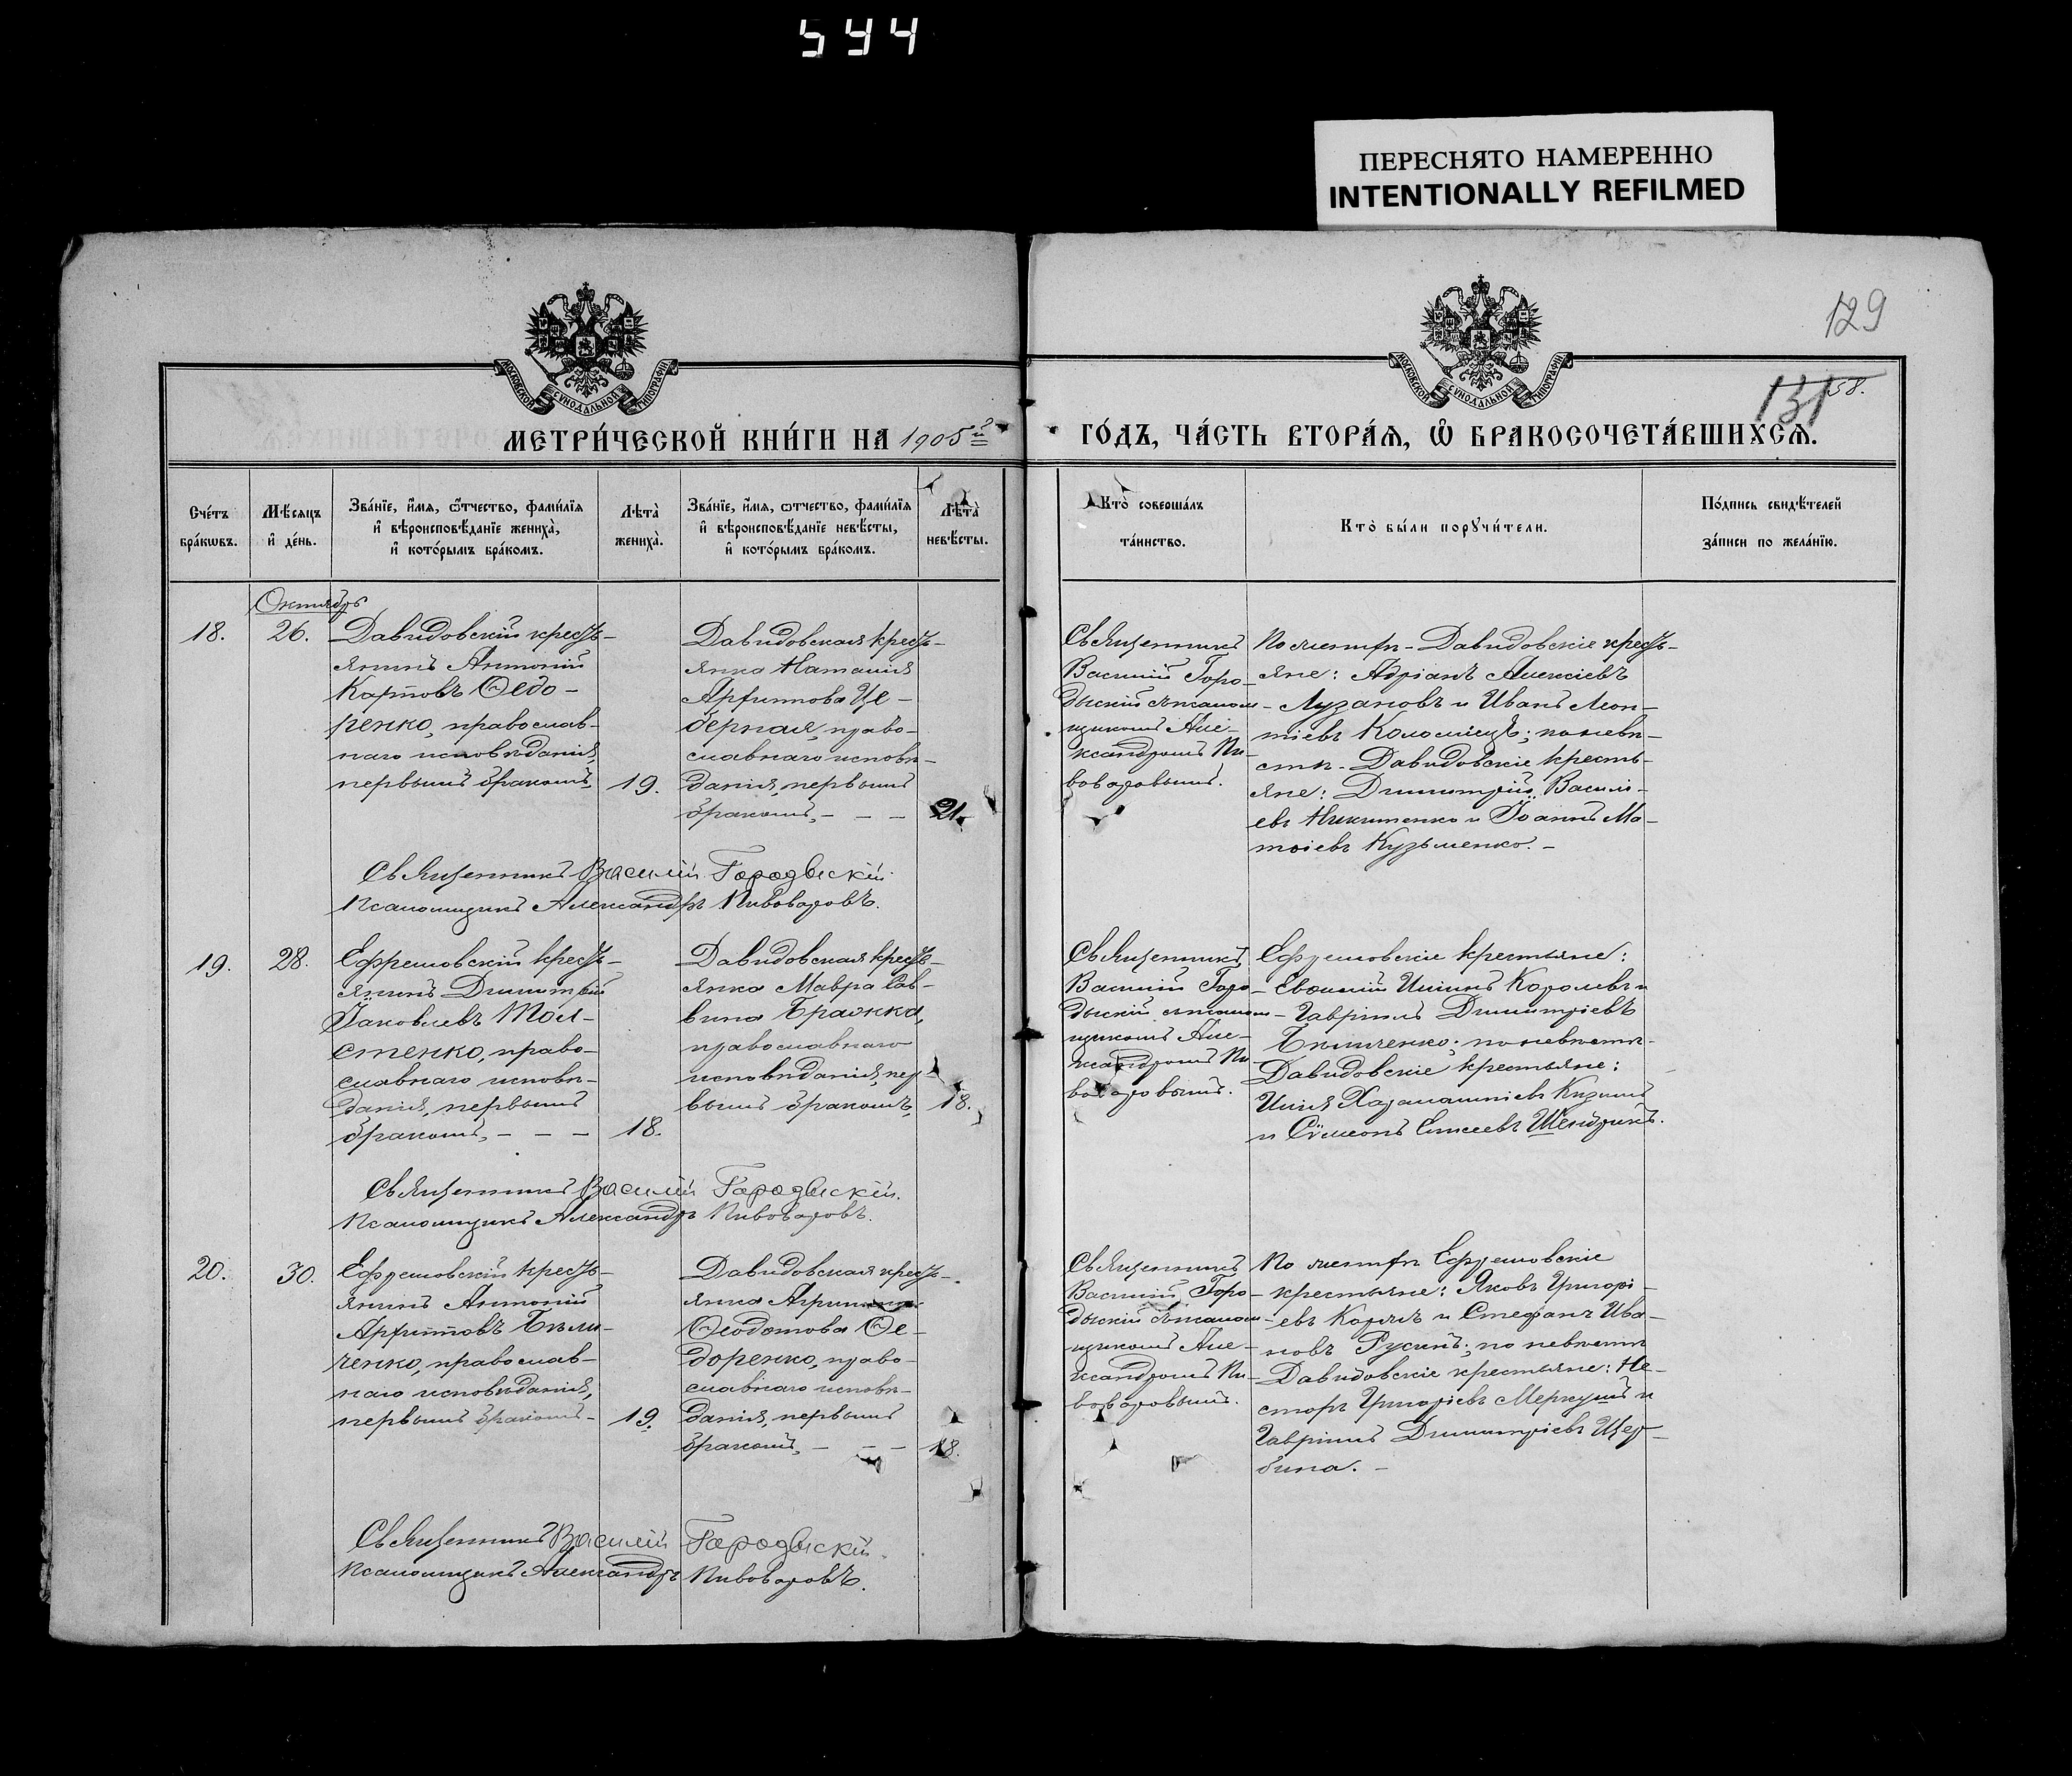 544
ПЕРЕСНЯТО НАМЕРЕННО
INTENTIONALLY REFILMED
129
131
58.
МОСКОВСКОЙ СУНОДАЛЬНОЙ ТИПОГРАФІИ
МОСКОВСКОЙ СУНОДАЛЬНОЙ ТИПОГРАФІИ
МЕТРИ́ЧЕСКОЙ КНИ́ГИ НА 1905й
ГО́ДЪ, ЧА́СТЬ ВТОРА́Я, Ѡ҆ БРАКОСОЧЕТА́ВШИХСѦ.
Сче́тъ бра́кѡвъ.
Мѣ́сяцъ и҆ де́нь.
Зва́нїе, и҆́мя, ѻ҆́тчество, фами́лїя
и҆ вѣроисповѣ́данїе жениха̀,
и҆ кото́рымъ бра́комъ.
Лѣта̀ жениха̀.
Зва́нїе, и҆́мя, ѻ҆́тчество, фами́лїя
и҆ вѣроисповѣ́данїе невѣ́сты,
и҆ кото́рымъ бра́комъ.
Лѣта̀ невѣ́сты.
Кто̀ соверша́лъ
та́инство.
Кто̀ бы́ли порꙋчи́тели.
По́дпись свидѣ́телей
за́писи по жела́нїю.
Октябрь
18.
26.
Давидовскій кресть-
янинъ Антоній
Карповъ Ѳедо-
ренко, православ-
наго исповѣданія,
первымъ бракомъ,
19.
Давидовская кресть-
янка Наталія
Архипова Це-
берная, право-
славнаго исповѣ-
данія, первымъ
бракомъ, - - -
21.
Священникъ
Василій Горо-
дыскій съ псалом-
щикомъ Але-
ксандромъ Пи-
воваровымъ.
По женихѣ - Давидовскіе кресть-
яне: Адріанъ Алексіевъ
Лузановъ и Иванъ Леон-
тіевъ Коломіецъ; по невѣ-
стѣ - Давидовскіе кресть-
яне: Димитрій Василі-
евъ Никитенко и Іоаннъ Ма-
тѳіевъ Кузьменко. -
Священникъ Василій Городыскій.
Псаломщикъ Александръ Пивоваровъ.
19.
28.
Ефремовскій кресть-
янинъ Димитрій
Іаковлевъ Тол-
стенко, право-
славнаго исповѣ-
данія, первымъ
бракомъ, - - -
18.
Давидовская кресть-
янка Мавра Сав-
вина Бражка,
православнаго
исповѣданія, пер-
вымъ бракомъ,
18.
Священникъ
Василій Горо-
дыскій съ псалом-
щикомъ Але-
ксандромъ Пи-
воваровымъ.
Ефремовскіе крестьяне:
Евѳимій Королевъ и
Гавріилъ Димитріевъ
Бѣличенко; по невѣстѣ -
Давидовскіе крестьяне:
Илія Харалампіевъ
и Сѵмеонъ Елисеевъ Шендрикъ.
Священникъ Василій Городыскій.
Псаломщикъ Александръ Пивоваровъ.
20.
30.
Ефремовскій кресть-
янинъ Антоній
Архиповъ Бѣли-
ченко, православ-
наго исповѣданія,
первымъ бракомъ -
19.
Давидовская кресть-
янка
Ѳеодотова Ѳе-
доренко, право-
славнаго исповѣ-
данія, первымъ
бракомъ, - - -
18.
Священникъ
Василій Горо-
дыскій съ псалом-
щикомъ Але-
ксандромъ Пи-
воваровымъ.
По женихѣ Ефремовскіе
крестьяне: Яковъ Григорі-
евъ и Стефанъ Ива-
новъ Русинъ; по невѣстѣ
Давидовскіе крестьяне: Не-
сторъ Григоріевъ Меркушъ и
Гавріилъ Димитріевъ Щер-
бина. -
Священникъ Василій Городыскій.
Псаломщикъ Александръ Пивоваровъ.